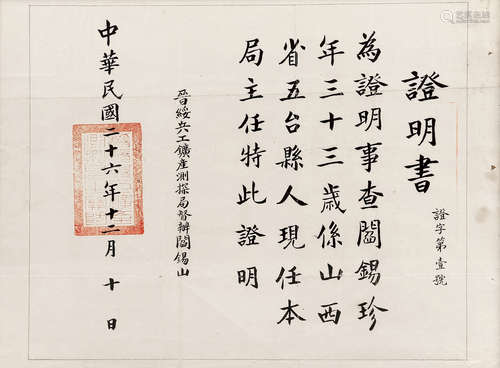 證明書
證字第壹號
為證明事查閻錫珍
年三十三歲係山西
省五台縣人現任本
局主任特此證明
晉綏兵工鑛產測探局督辦閻錫山
中華民國二十六年十二月十日